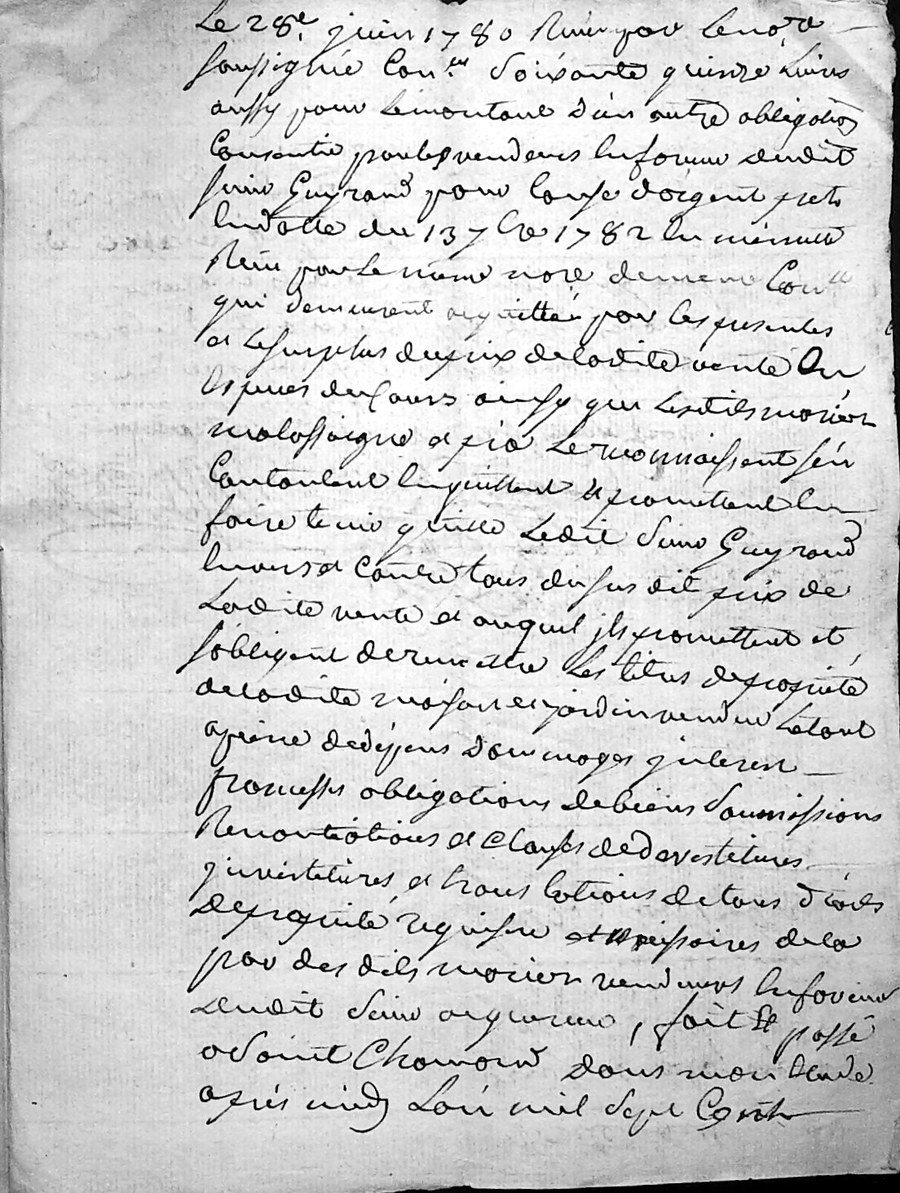 Le 28e. juin 1780 Reçu par le no.re
soussigné Con.lle Soixante quinze Livres
aussy pour Le montant d'un autre obligation
Consentie par les vendeurs En faveur dudit
sieur Guyrand pour Cause d'argent prete
En datte du 13 7bre 1782 En minutte
Reçu par Le meme nore dememe Con.lle
qui demeurent acquittée par Les presentes
et Le surplus du prix de ladite vente En
Especes du Cours ainsy que Lesdits morier
malassaigne et Le reconnaissent s'en
Contentent En quittent et promettent En
faire tenir quitte Ledit Sieur Guyrand
Envers et Contre tous du sus dit prix de
Ladite vente et auquel jls promettent et
s'obligent de remettre Les titres de propriété
de ladite maison et jardin vendu Le tout
a peine de depens Dommages jnterest
promesses obligations de biens Soumissions
Renonciations et Clauses de devestitures
jnvestitures et translations de tous droits
De propriété requises et necessaires de la
par des dits morier vendeurs En faveur
Dudit Sieur acquereur, fait et passé
a Saint Chamond dans mon Etude
apres midy L'an mil Sept Cent